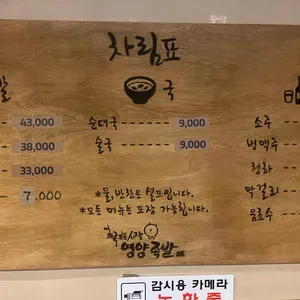 차림표
국
43,000
38,000
33,000
7.000
순대국 9,000
술국 9,000
소주
병맥주
청하
막걸리
음료수
*물, 반찬은 셀프입니다.
*모든 메뉴는 포장 가능합니다.
영양족발
감시용 카메라
녹화중